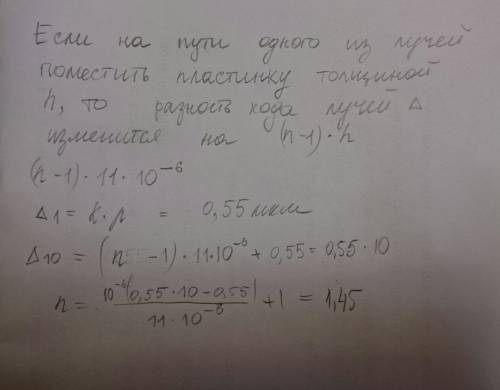 Если на пути одного из лучей
поместить пластинку толщиной
h, то разность хода лучей Δ
изменится на (n-1)·h
(n-1)·11·10⁻⁶
Δ₁ = k·λ = 0,55 мкм
Δ₁₀ = (n-1)·11·10⁻⁶ + 0,55 = 0,55·10
n = 10⁻⁶(0,55·10-0,55) / 11·10⁻⁶ + 1 = 1,45